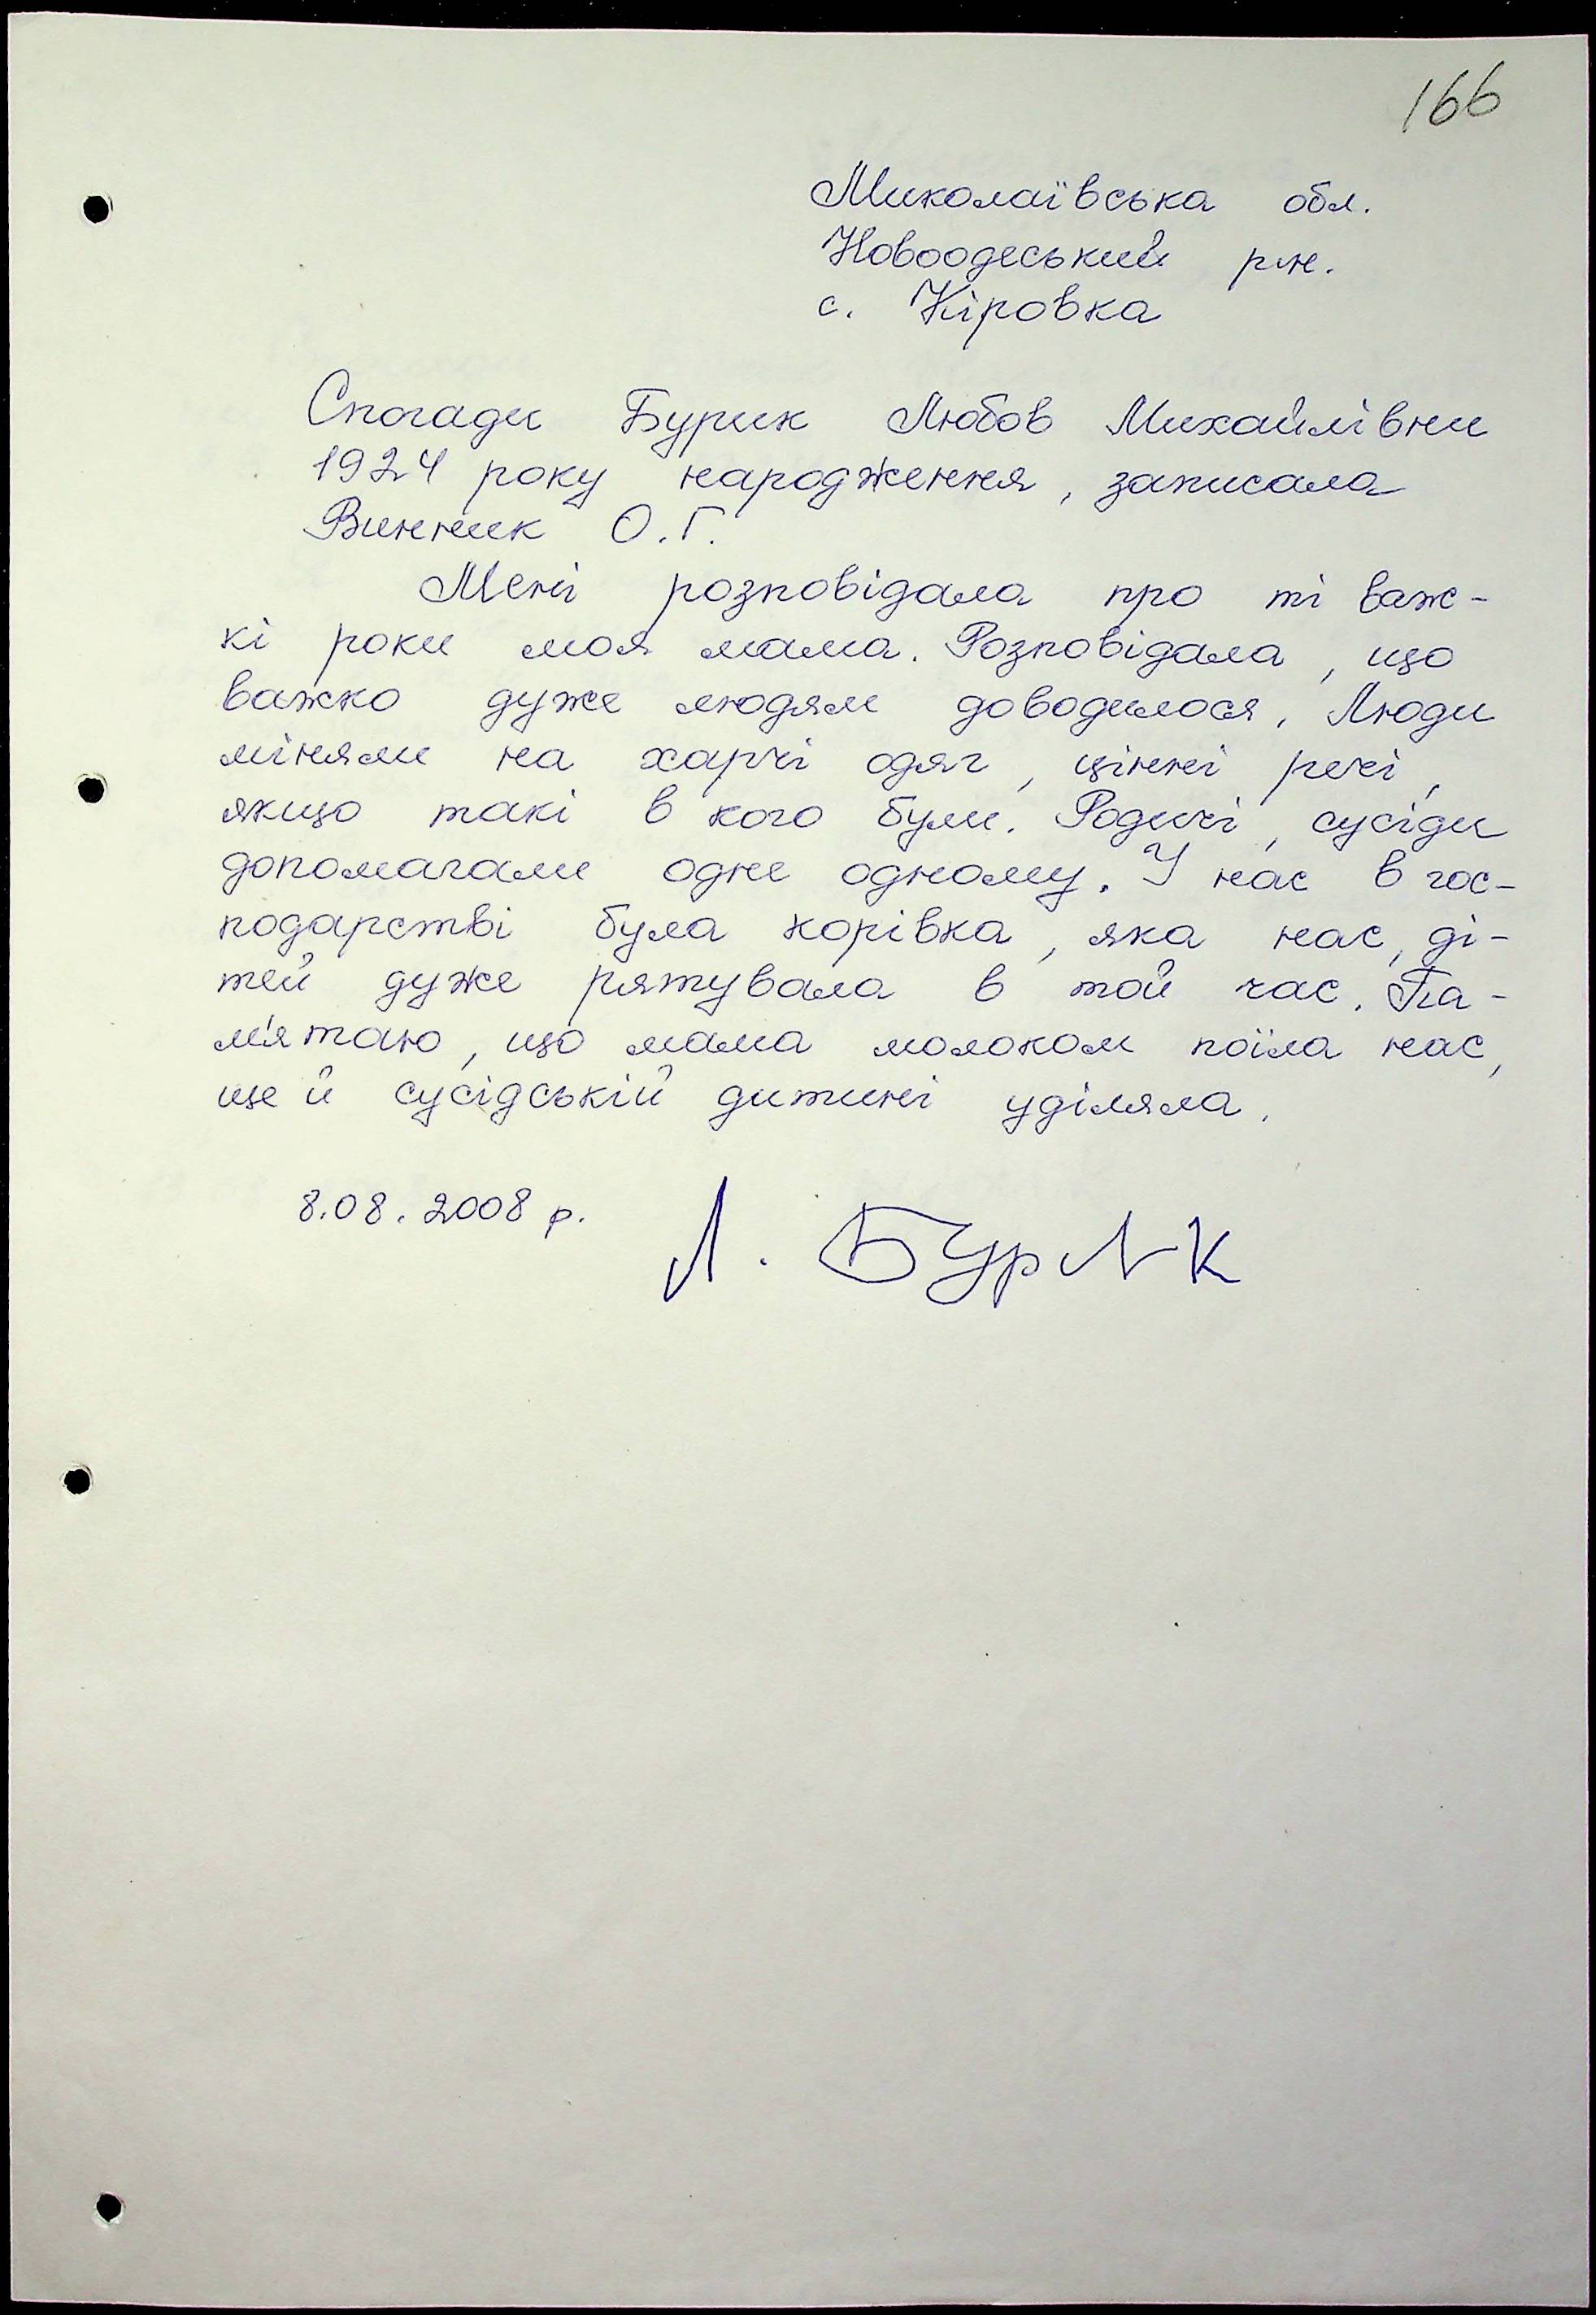 166
Миколаївська обл.
Новоодеський р-н.
с. Кіровка
Спогади Бурик Любов Михайлівни
1924 року народження, записала
Винник О.Г.
Мені розповідала про ті важ-
кі роки моя мама. Розповідала, що
важко дуже людям доводилося. Люди
міняли на харчі одяг, цінні речі,
якщо такі в кого були. Родичі, сусіди
допомагали одне одному. У нас в гос-
подарстві була корівка, яка нас, ді-
тей дуже рятувала в той час. Па-
м'ятаю, що мама молоком поїла нас,
ще й сусідській дитині уділяла.
8.08.2008 р.
Л. Бурик